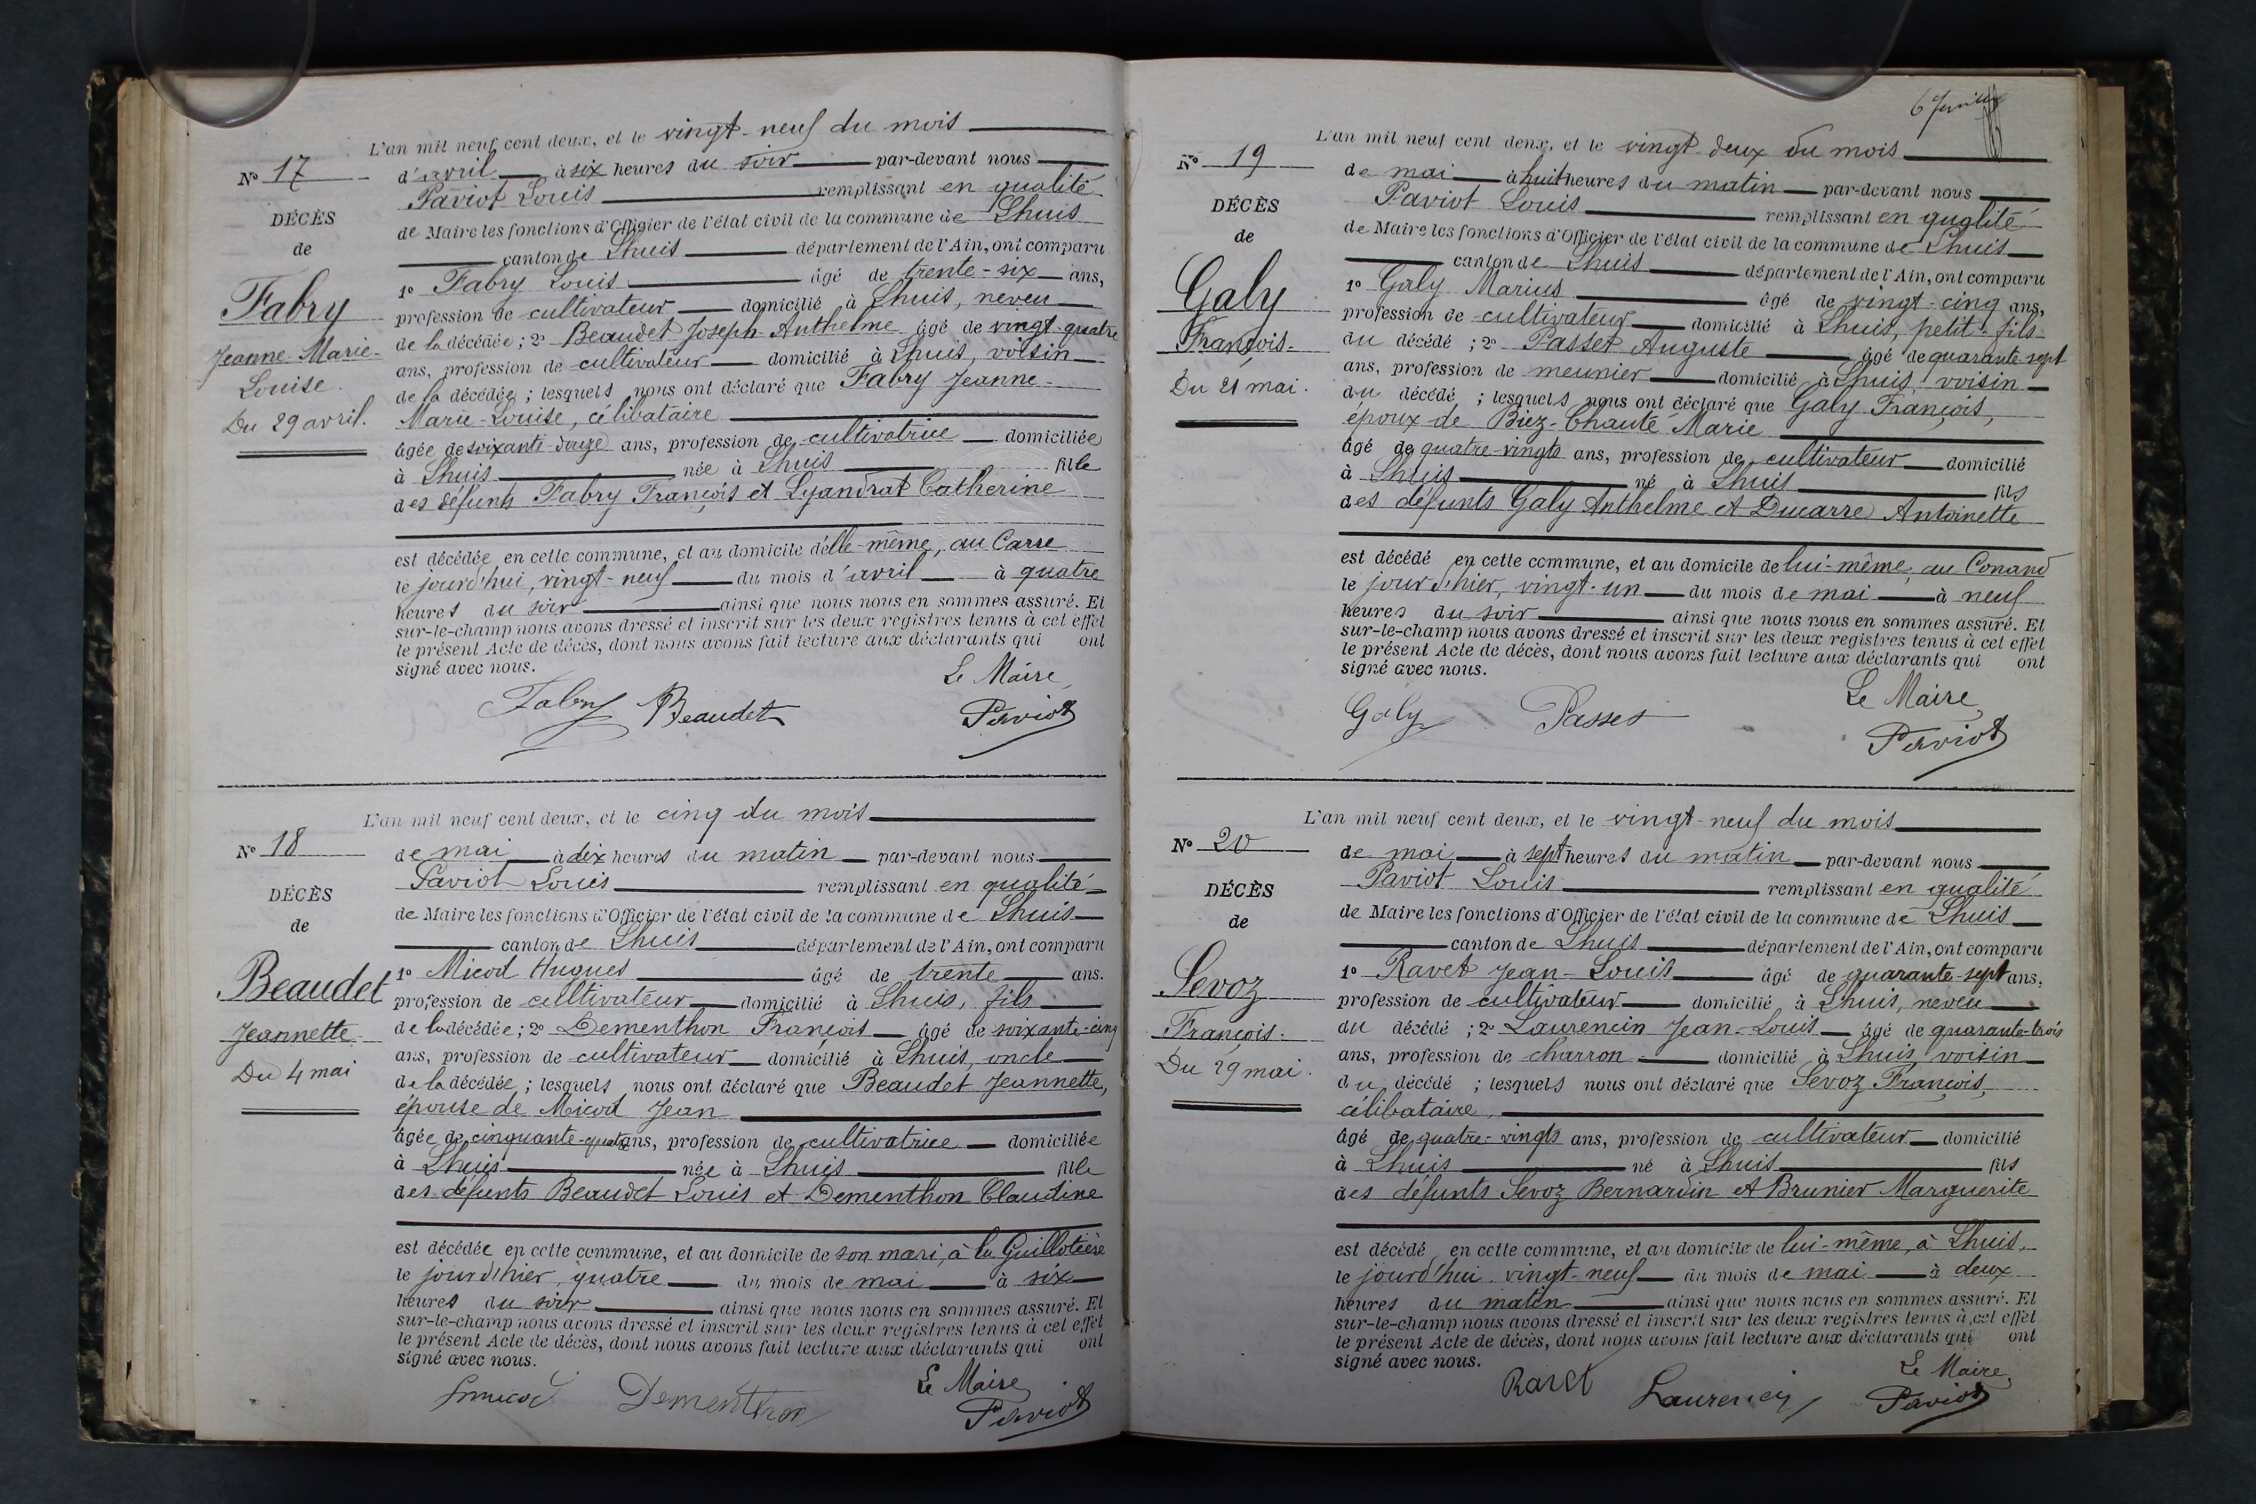 N° 17
DÉCÈS
de
Fabry
Jeanne-Marie-
Louise.
Du 29 avril.
L'an mil neuf cent deux, et le vingt-neuf du mois
d'avril à six heures du soir par-devant nous
Paviot Louis remplissant en qualité
de Maire les fonctions d'Officier de l'état civil de la commune de Lhuis
canton de Lhuis département de l'Ain, ont comparu
1° Fabry Louis âgé de trente-six ans,
profession de cultivateur domicilié à Lhuis, neveu
de la décédée ; 2° Beaudet Joseph-Anthelme âgé de vingt-quatre
ans, profession de cultivateur domicilié à Lhuis, voisin
de la décédée ; lesquels nous ont déclaré que Fabry Jeanne-
Marie-Louise, célibataire
âgée de soixante-douze ans, profession de cultivatrice domiciliée
à Lhuis née à Lhuis fille
des défunts Fabry François et Lyandrat Catherine
est décédée en cette commune, et au domicile d'elle-même, au Carre
le jourd'hui, vingt-neuf du mois d'avril à quatre
heures du soir ainsi que nous nous en sommes assuré. Et
sur-le-champ nous avons dressé et inscrit sur les deux registres tenus à cet effet
le présent Acte de décès, dont nous avons fait lecture aux déclarants qui ont
signé avec nous.
Le Maire,
Fabry Beaudet Paviot
N° 18
DÉCÈS
de
Beaudet
Jeannette
Du 4 mai
L'an mil neuf cent deux, et le cinq du mois
de mai à dix heures du matin par-devant nous
Paviot Louis remplissant en qualité
de Maire les fonctions d'Officier de l'état civil de la commune de Lhuis
canton de Lhuis département de l'Ain, ont comparu
1° Micod Hugues âgé de trente ans.
profession de cultivateur domicilié à Lhuis, fils
de la décédée ; 2° Dementhon François âgé de soixante-cinq
ans, profession de cultivateur domicilié à Lhuis, oncle
de la décédée ; lesquels nous ont déclaré que Beaudet Jeannette,
épouse de Micod Jean
âgée de cinquante-quatre ans, profession de cultivatrice domiciliée
à Lhuis née à Lhuis fille
des défunts Beaudet Louis et Dementhon Claudine
est décédée en cette commune, et au domicile de son mari, à la Guillotière
le jour d'hier, quatre du mois de mai à six
heures du soir ainsi que nous nous en sommes assuré. Et
sur-le-champ nous avons dressé et inscrit sur les deux registres tenus à cet effet
le présent Acte de décès, dont nous avons fait lecture aux déclarants qui ont
signé avec nous.
Le Maire,
Dementhon Paviot
N° 19
DÉCÈS
de
Galy
François.
Du 21 mai.
L'an mil neuf cent deux, et le vingt-deux du mois
de mai à huit heures du matin par-devant nous
Paviot Louis remplissant en qualité
de Maire les fonctions d'Officier de l'état civil de la commune de Lhuis
canton de Lhuis département de l'Ain, ont comparu
1° Galy Marius âgé de vingt-cinq ans,
profession de cultivateur domicilié à Lhuis, petit-fils
du décédé ; 2° Passet Auguste âgé de quarante-sept
ans, profession de meunier domicilié à Lhuis, voisin
du décédé ; lesquels nous ont déclaré que Galy François,
époux de Biez-Chauté Marie
âgé de quatre-vingts ans, profession de cultivateur domicilié
à Lhuis né à Lhuis fils
des défunts Galy Anthelme et Ducarre Antoinette
est décédé en cette commune, et au domicile de lui-même, au Conand
le jour d'hier, vingt-un du mois de mai à neuf
heures du soir ainsi que nous nous en sommes assuré. Et
sur-le-champ nous avons dressé et inscrit sur les deux registres tenus à cet effet
le présent Acte de décès, dont nous avons fait lecture aux déclarants qui ont
signé avec nous.
Le Maire,
Galy Passet Paviot
N° 20
DÉCÈS
de
Sevoz
François.
Du 29 mai.
L'an mil neuf cent deux, et le vingt-neuf du mois
de mai à sept heures du matin par-devant nous
Paviot Louis remplissant en qualité
de Maire les fonctions d'Officier de l'état civil de la commune de Lhuis
canton de Lhuis département de l'Ain, ont comparu
1° Ravet Jean-Louis âgé de quarante-sept ans,
profession de cultivateur domicilié à Lhuis, neveu
du décédé ; 2° Laurencin Jean-Louis âgé de quarante-trois
ans, profession de charron domicilié à Lhuis, voisin
du décédé ; lesquels nous ont déclaré que Sevoz François,
célibataire,
âgé de quatre-vingts ans, profession de cultivateur domicilié
à Lhuis né à Lhuis fils
des défunts Sevoz Bernardin et Brunier Marguerite
est décédé en cette commune, et au domicile de lui-même, à Lhuis,
le jourd'hui vingt-neuf du mois de mai à deux
heures du matin ainsi que nous nous en sommes assuré. Et
sur-le-champ nous avons dressé et inscrit sur les deux registres tenus à cet effet
le présent Acte de décès, dont nous avons fait lecture aux déclarants qui ont
signé avec nous.
Le Maire,
Ravet Laurencin Paviot